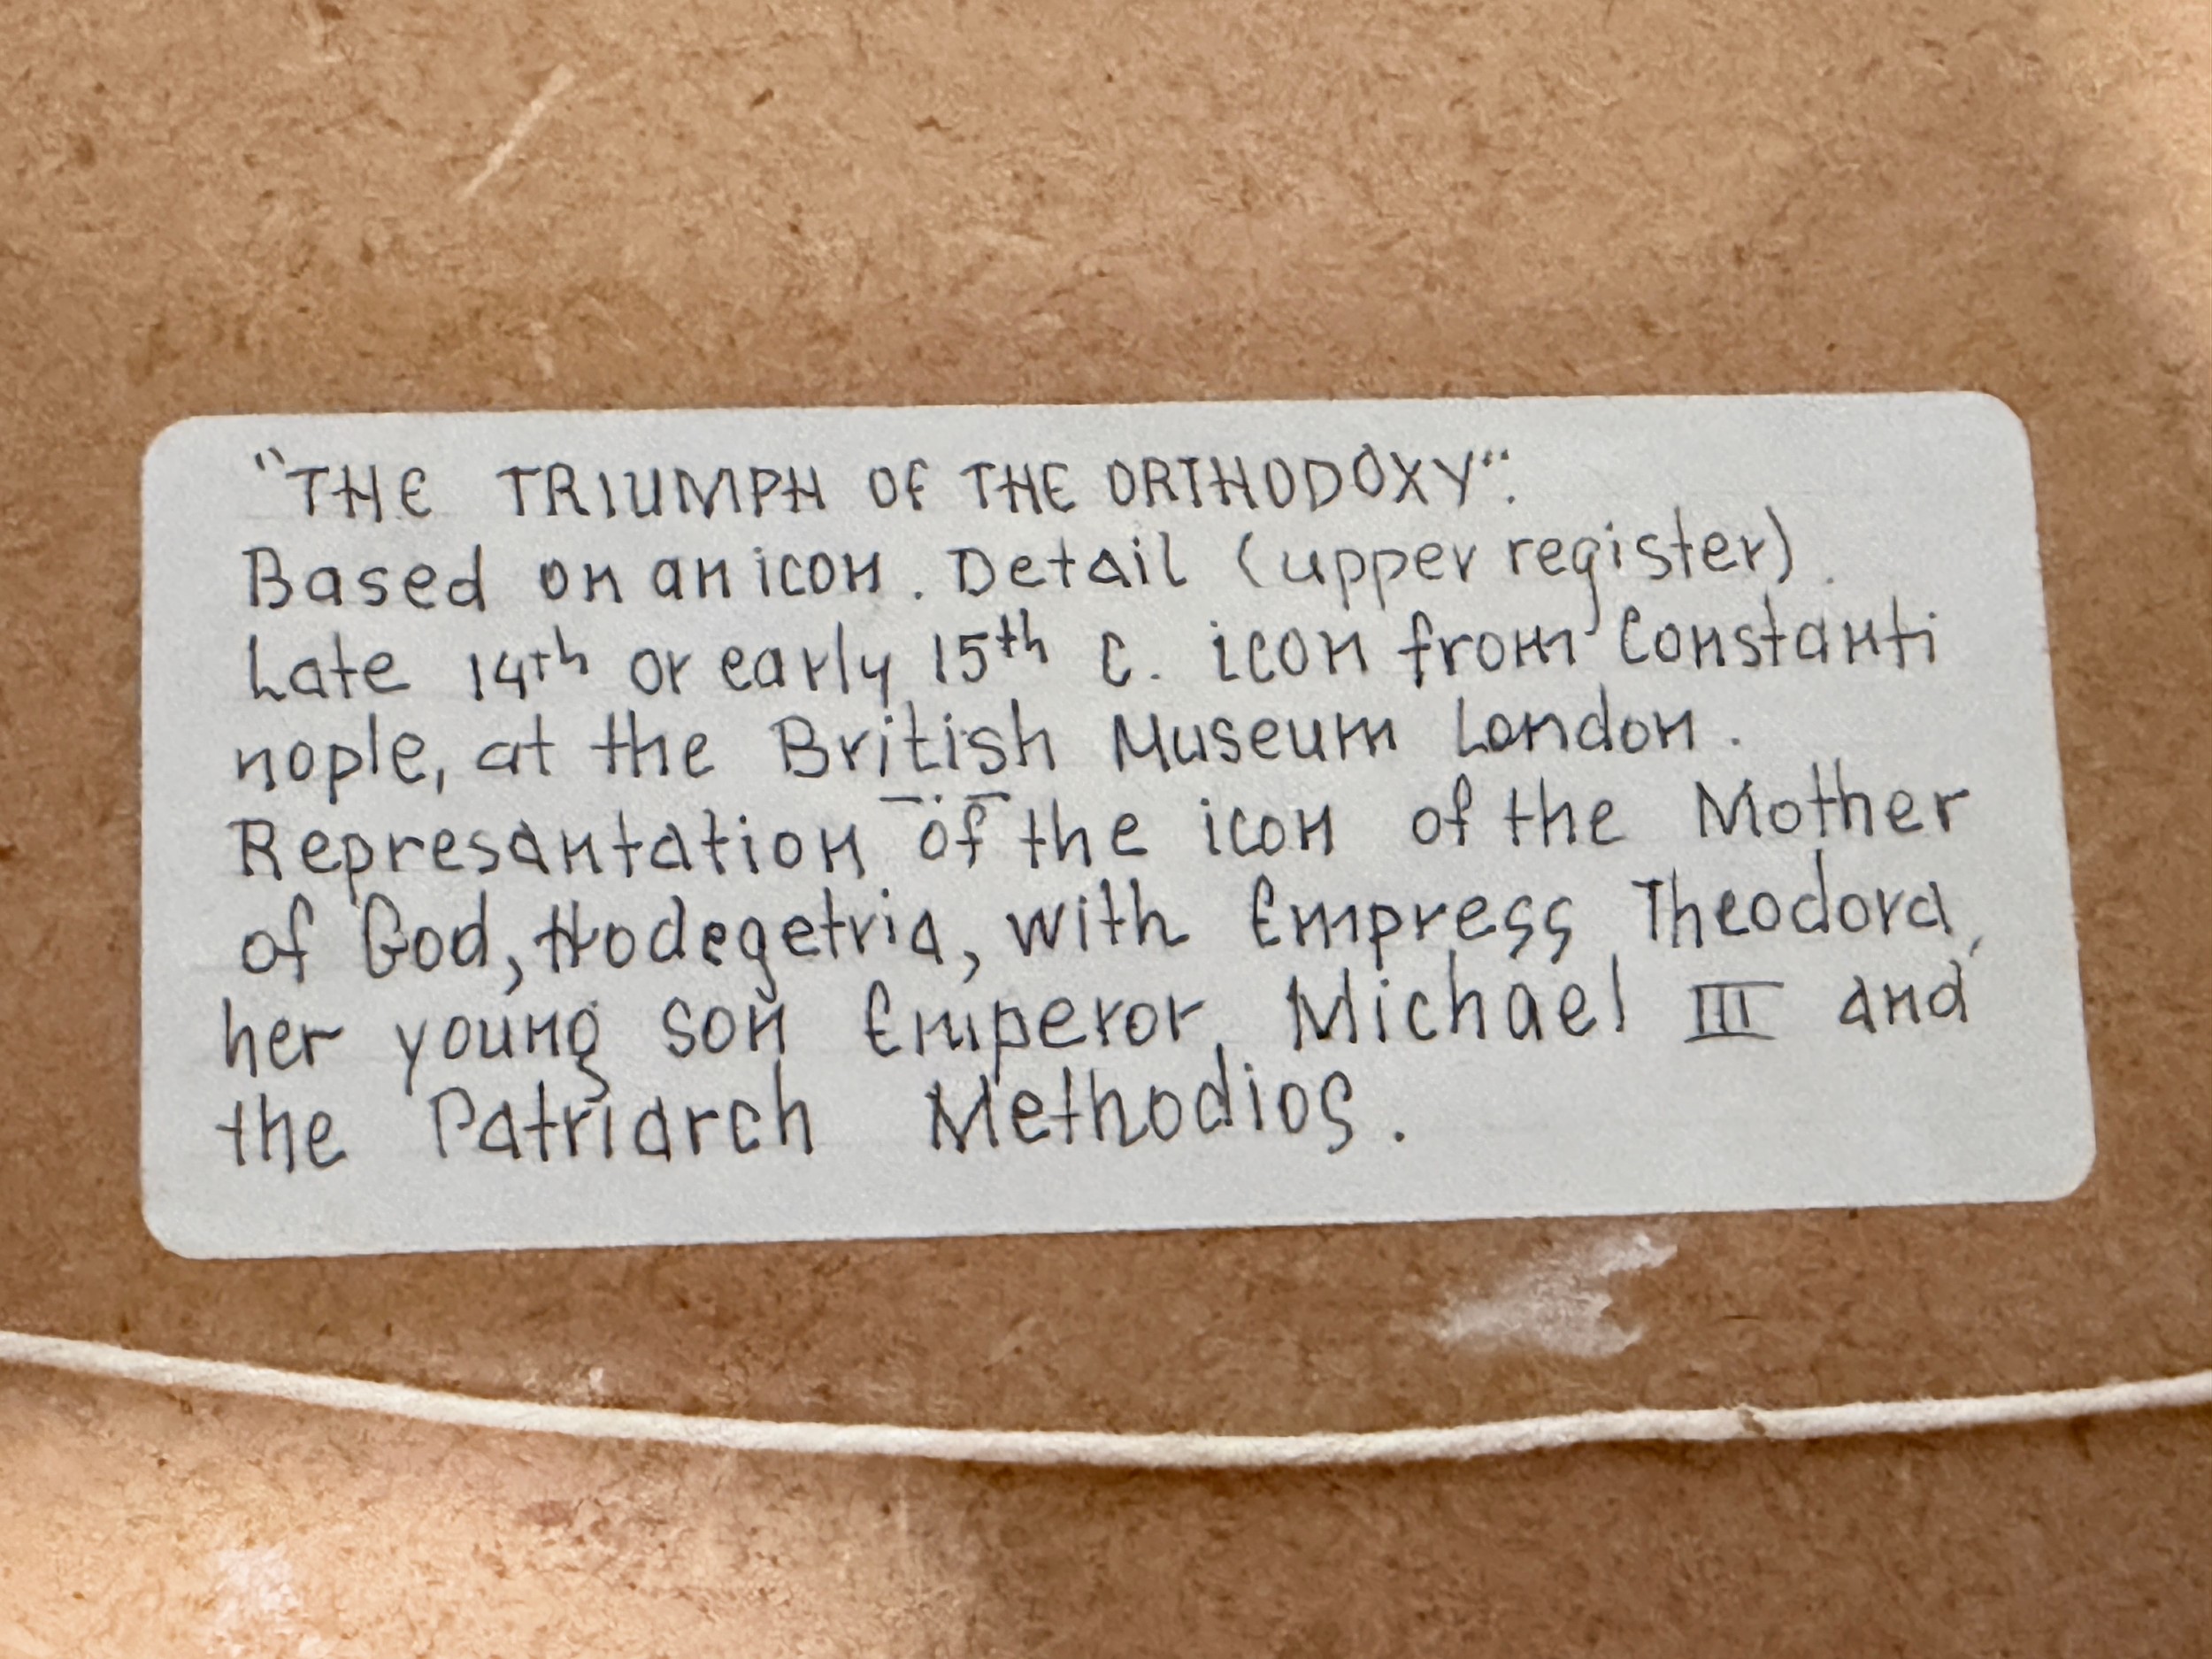 "THE TRIUMPH OF THE ORTHODOXY".
Based on an icon. Detail (upper register).
Late 14th or early 15th c. icon from Constanti
nople, at the British Museum London.
— . —
Represantation of the icon of the Mother
of God, Hodegetria, with Empress Theodora,
her young son Emperor, Michael III and
the Patriarch Methodios.